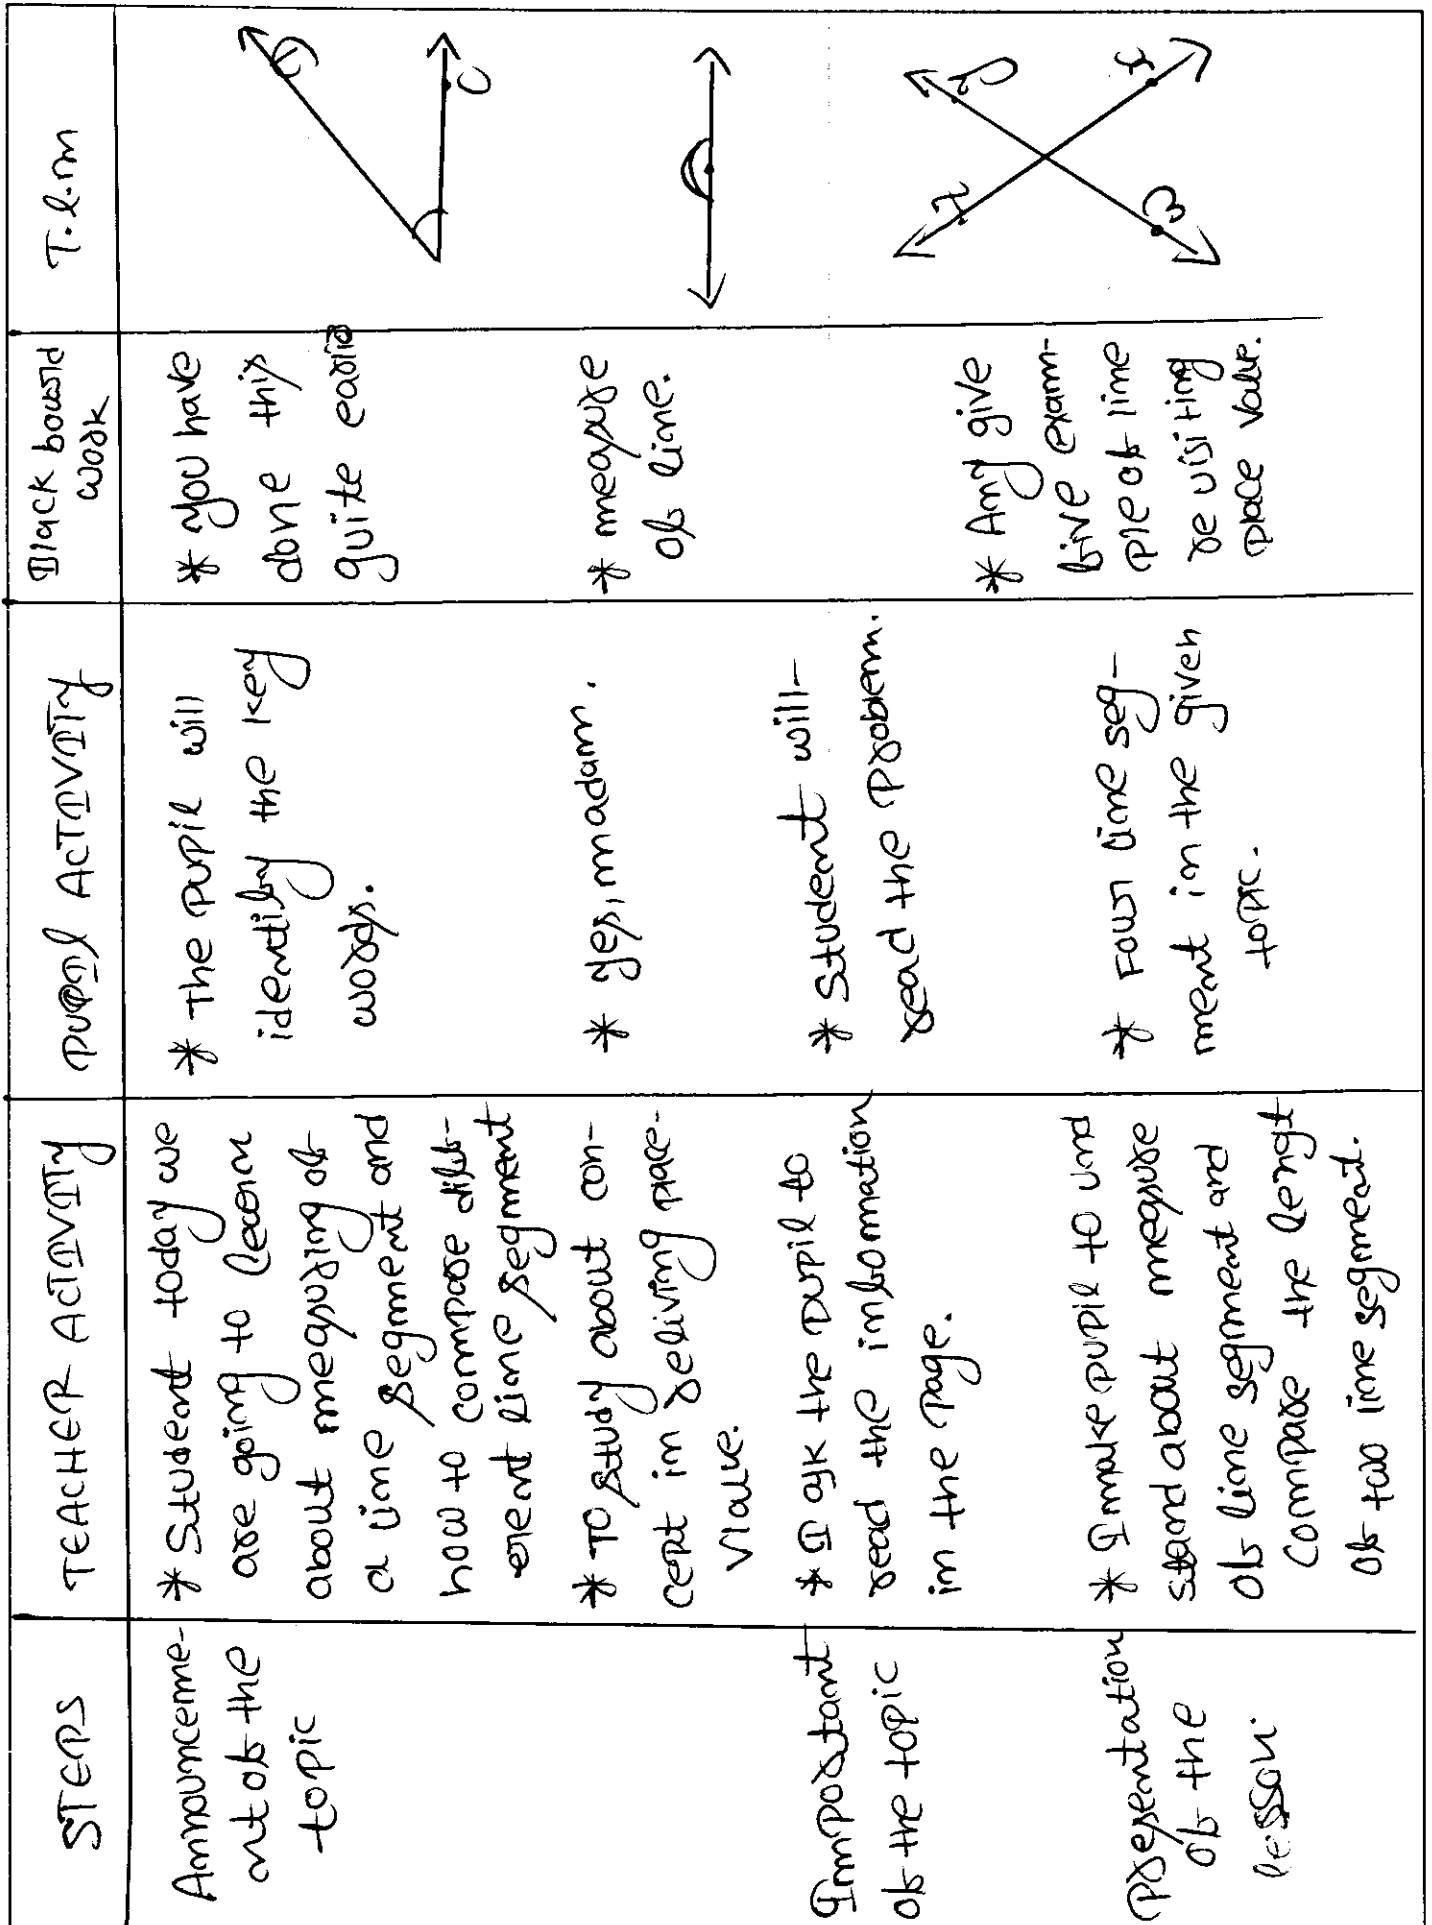 STEPS
TEACHER ACTIVITY
PUPIL ACTIVITY
Black bourd
work
T.l.m
Announceme-
nt of the
topic
* Student today we
are going to learn
about measuring of
a line segment and
how to compare diff-
erent line segment
* To study about con-
cept in reliving place-
vlalue.
* The pupil will
identify the key
words.
* Yes, madam.
* you have
done this
quite earlie
* measure
of line.
Important
of the topic
* I ask the pupil to
read the information
in the page.
* Student will-
read the problem.
Presentation
of the
lesson.
* I make pupil to und
stand about measure
of line segment and
compare the lengt
of two line segment.
* Four line seg-
ment in the given
topic.
* Any give
five exam-
ple of line
re visiting
place value.